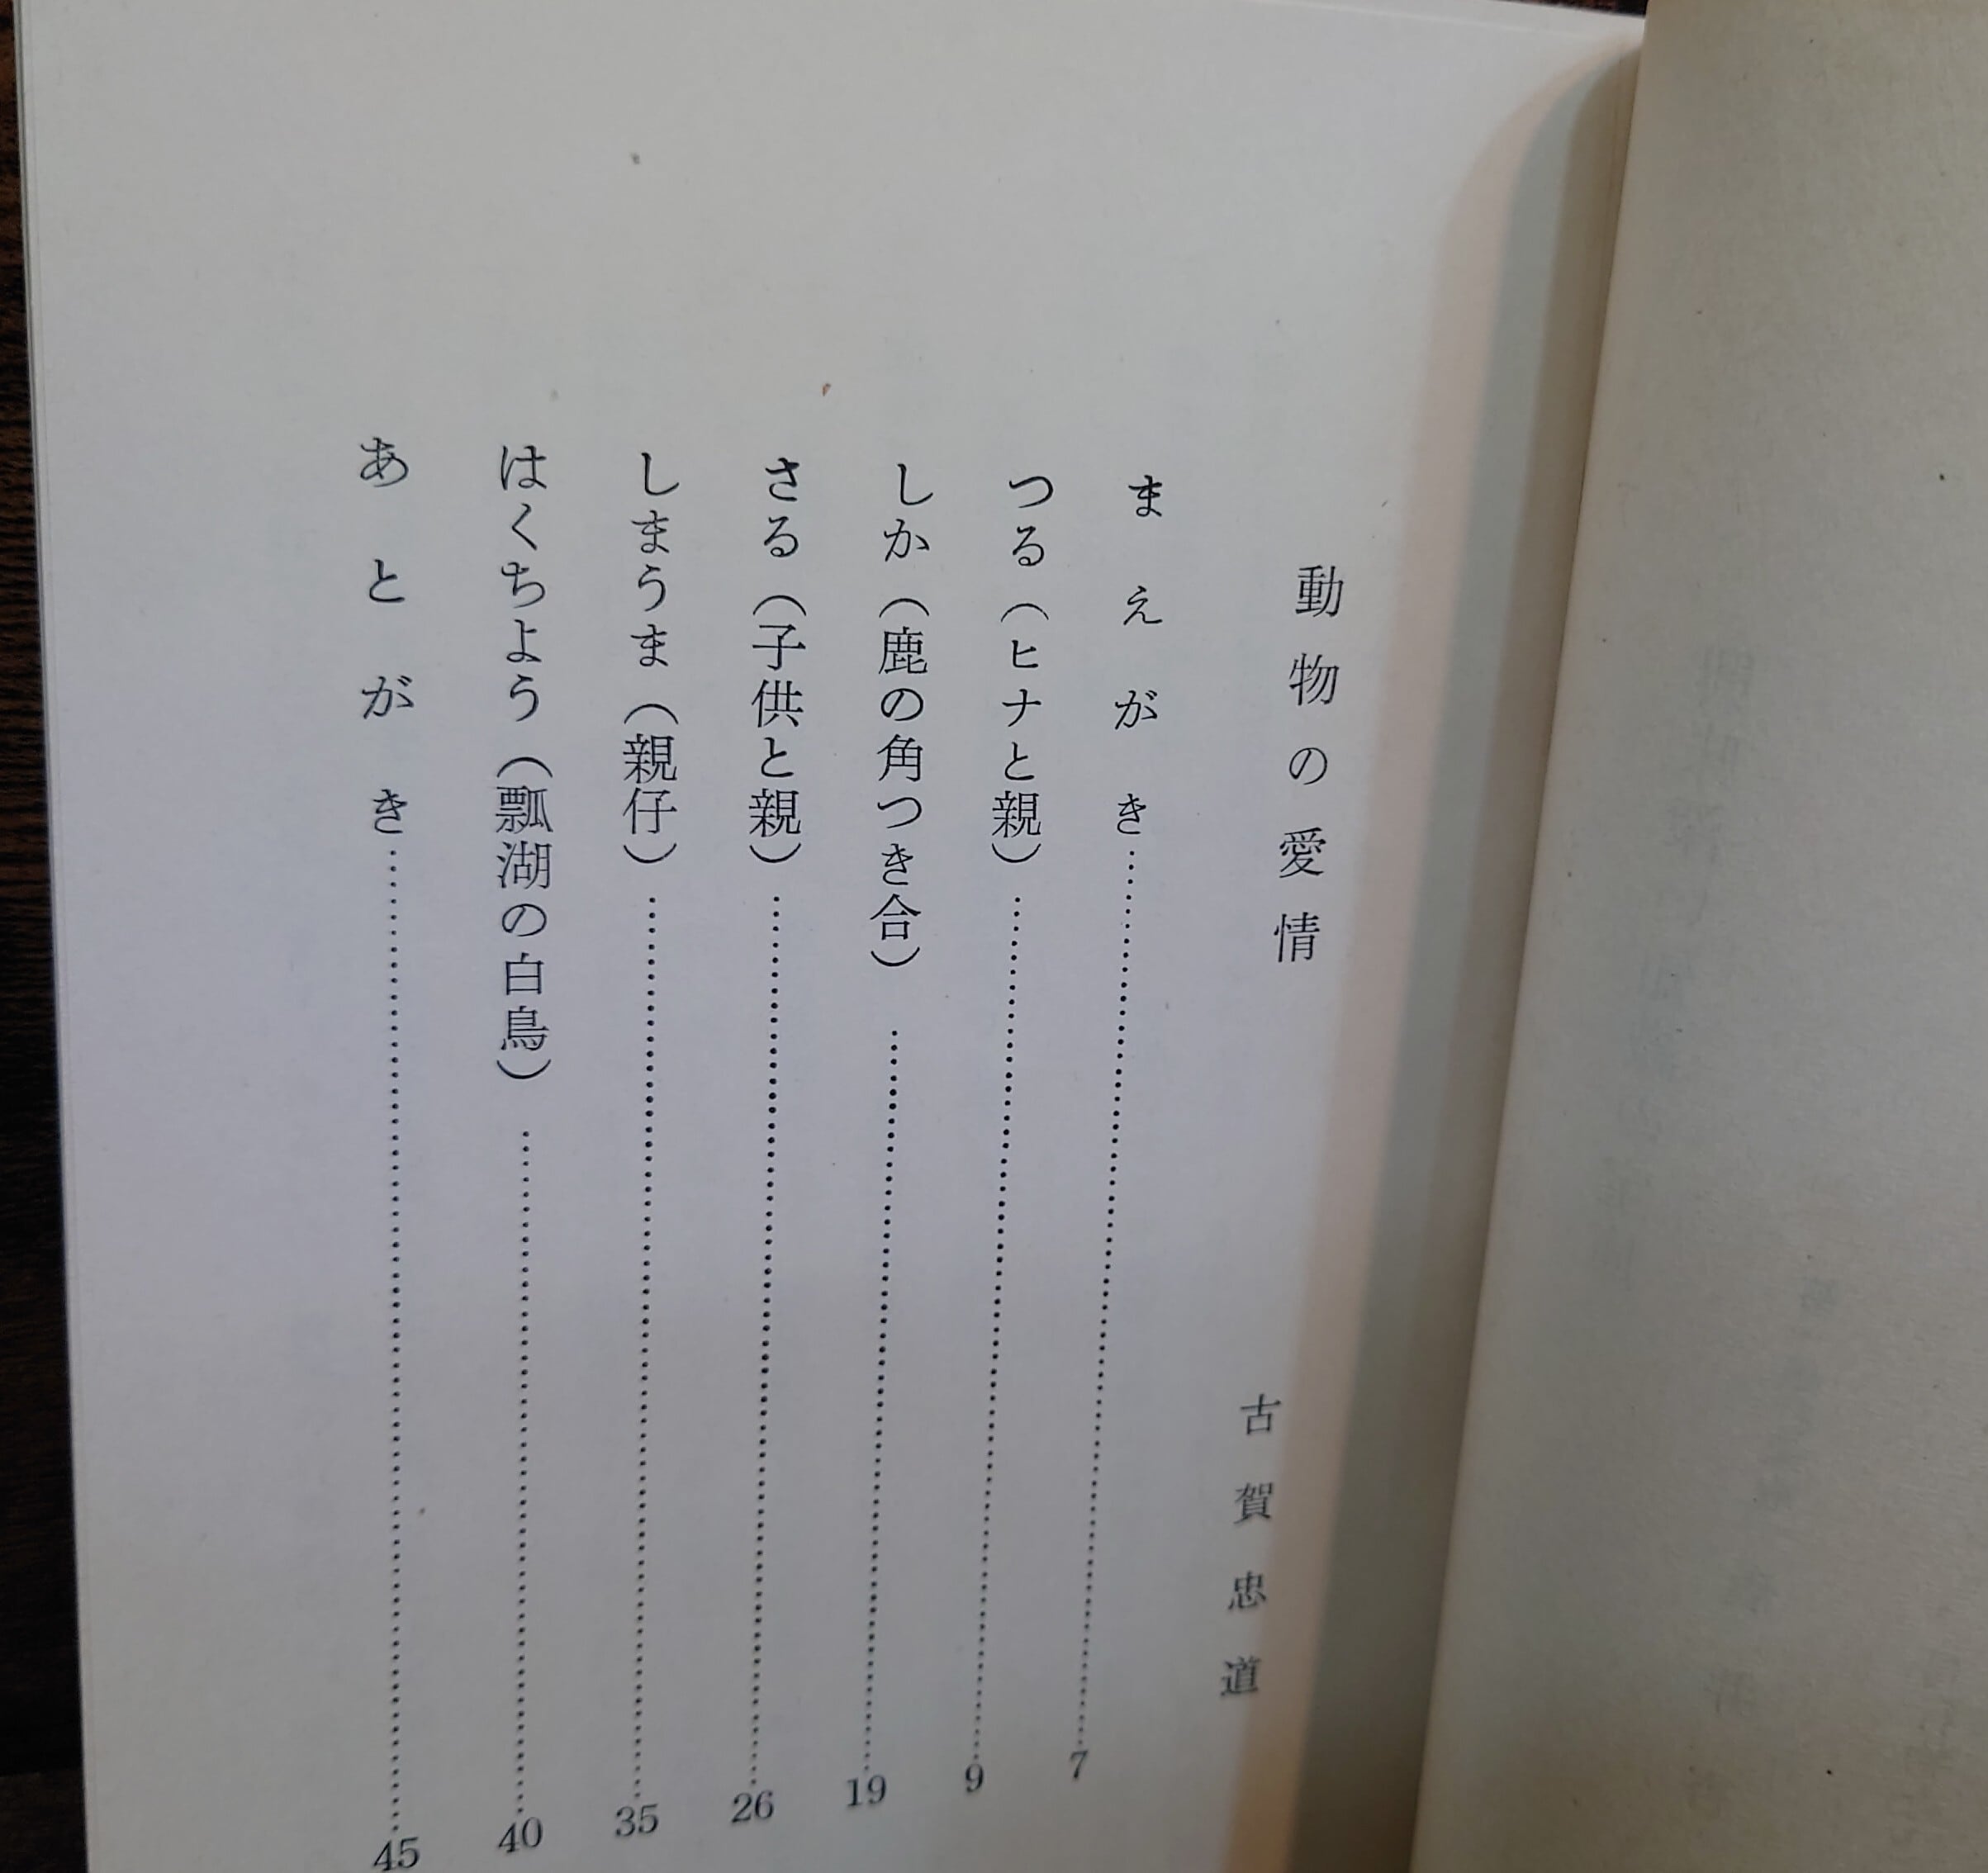 動物の愛情
古賀忠道
まえがき……………………7
つる（ヒナと親）……………………9
しか（鹿の角つき合）……………………19
さる（子供と親）……………………26
しまうま（親仔）……………………35
はくちよう（瓢湖の白鳥）……………………40
あとがき……………………45